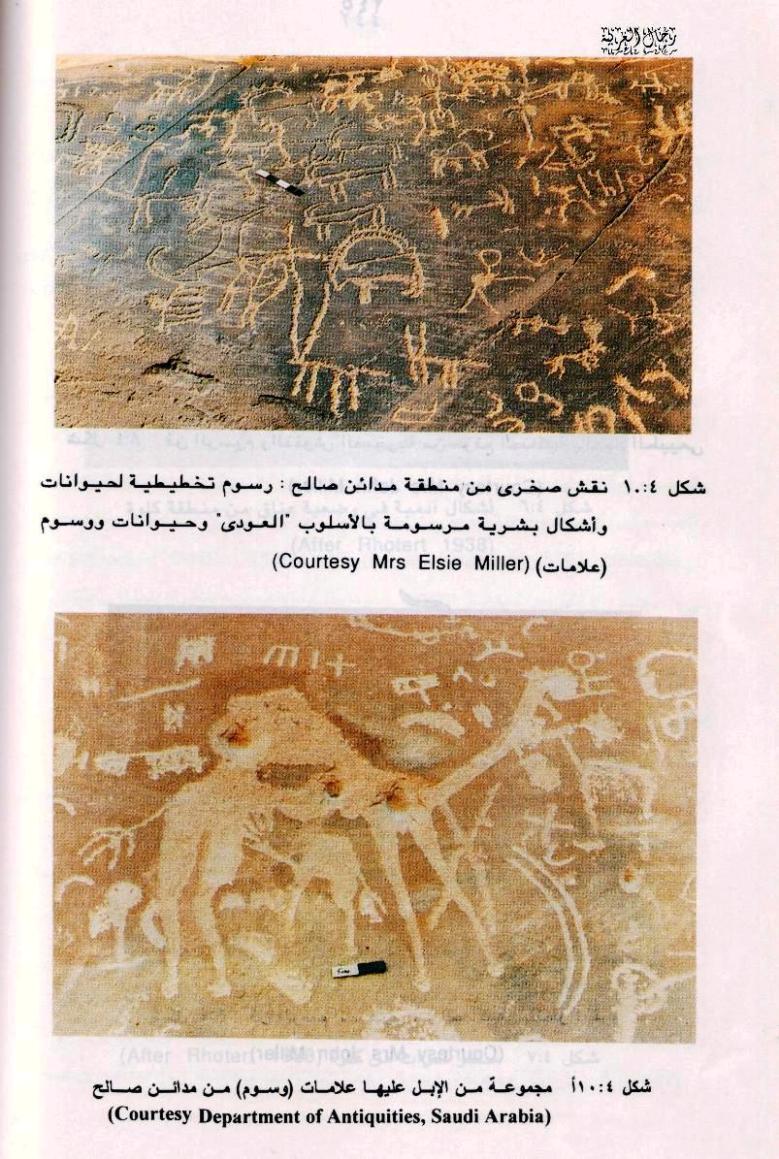 رجال الغربية
شكل ١٠:٤ نقش صخرى من منطقة مدائن صالح : رسوم تخطيطية لحيوانات
وأشكال بشرية مرسومة بالأسلوب "العودى" وحيوانات ووسوم
(علامات) (Courtesy Mrs Elsie Miller)
شكل ١٠:٤أ مجموعة من الإبل عليها علامات (وسوم) من مدائن صالح
(Courtesy Department of Antiquities, Saudi Arabia)